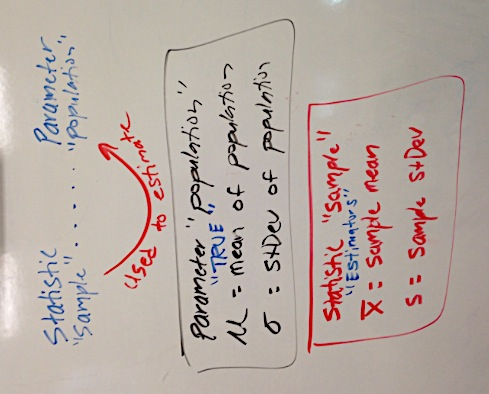 Statistic ..... Parameter
"Sample" "population"
Used to estimate
Parameter "population"
"TRUE"
μ = mean of population
σ = stDev of population
Statistic "sample"
"Estimators"
x̄ = sample mean
s = sample stDev